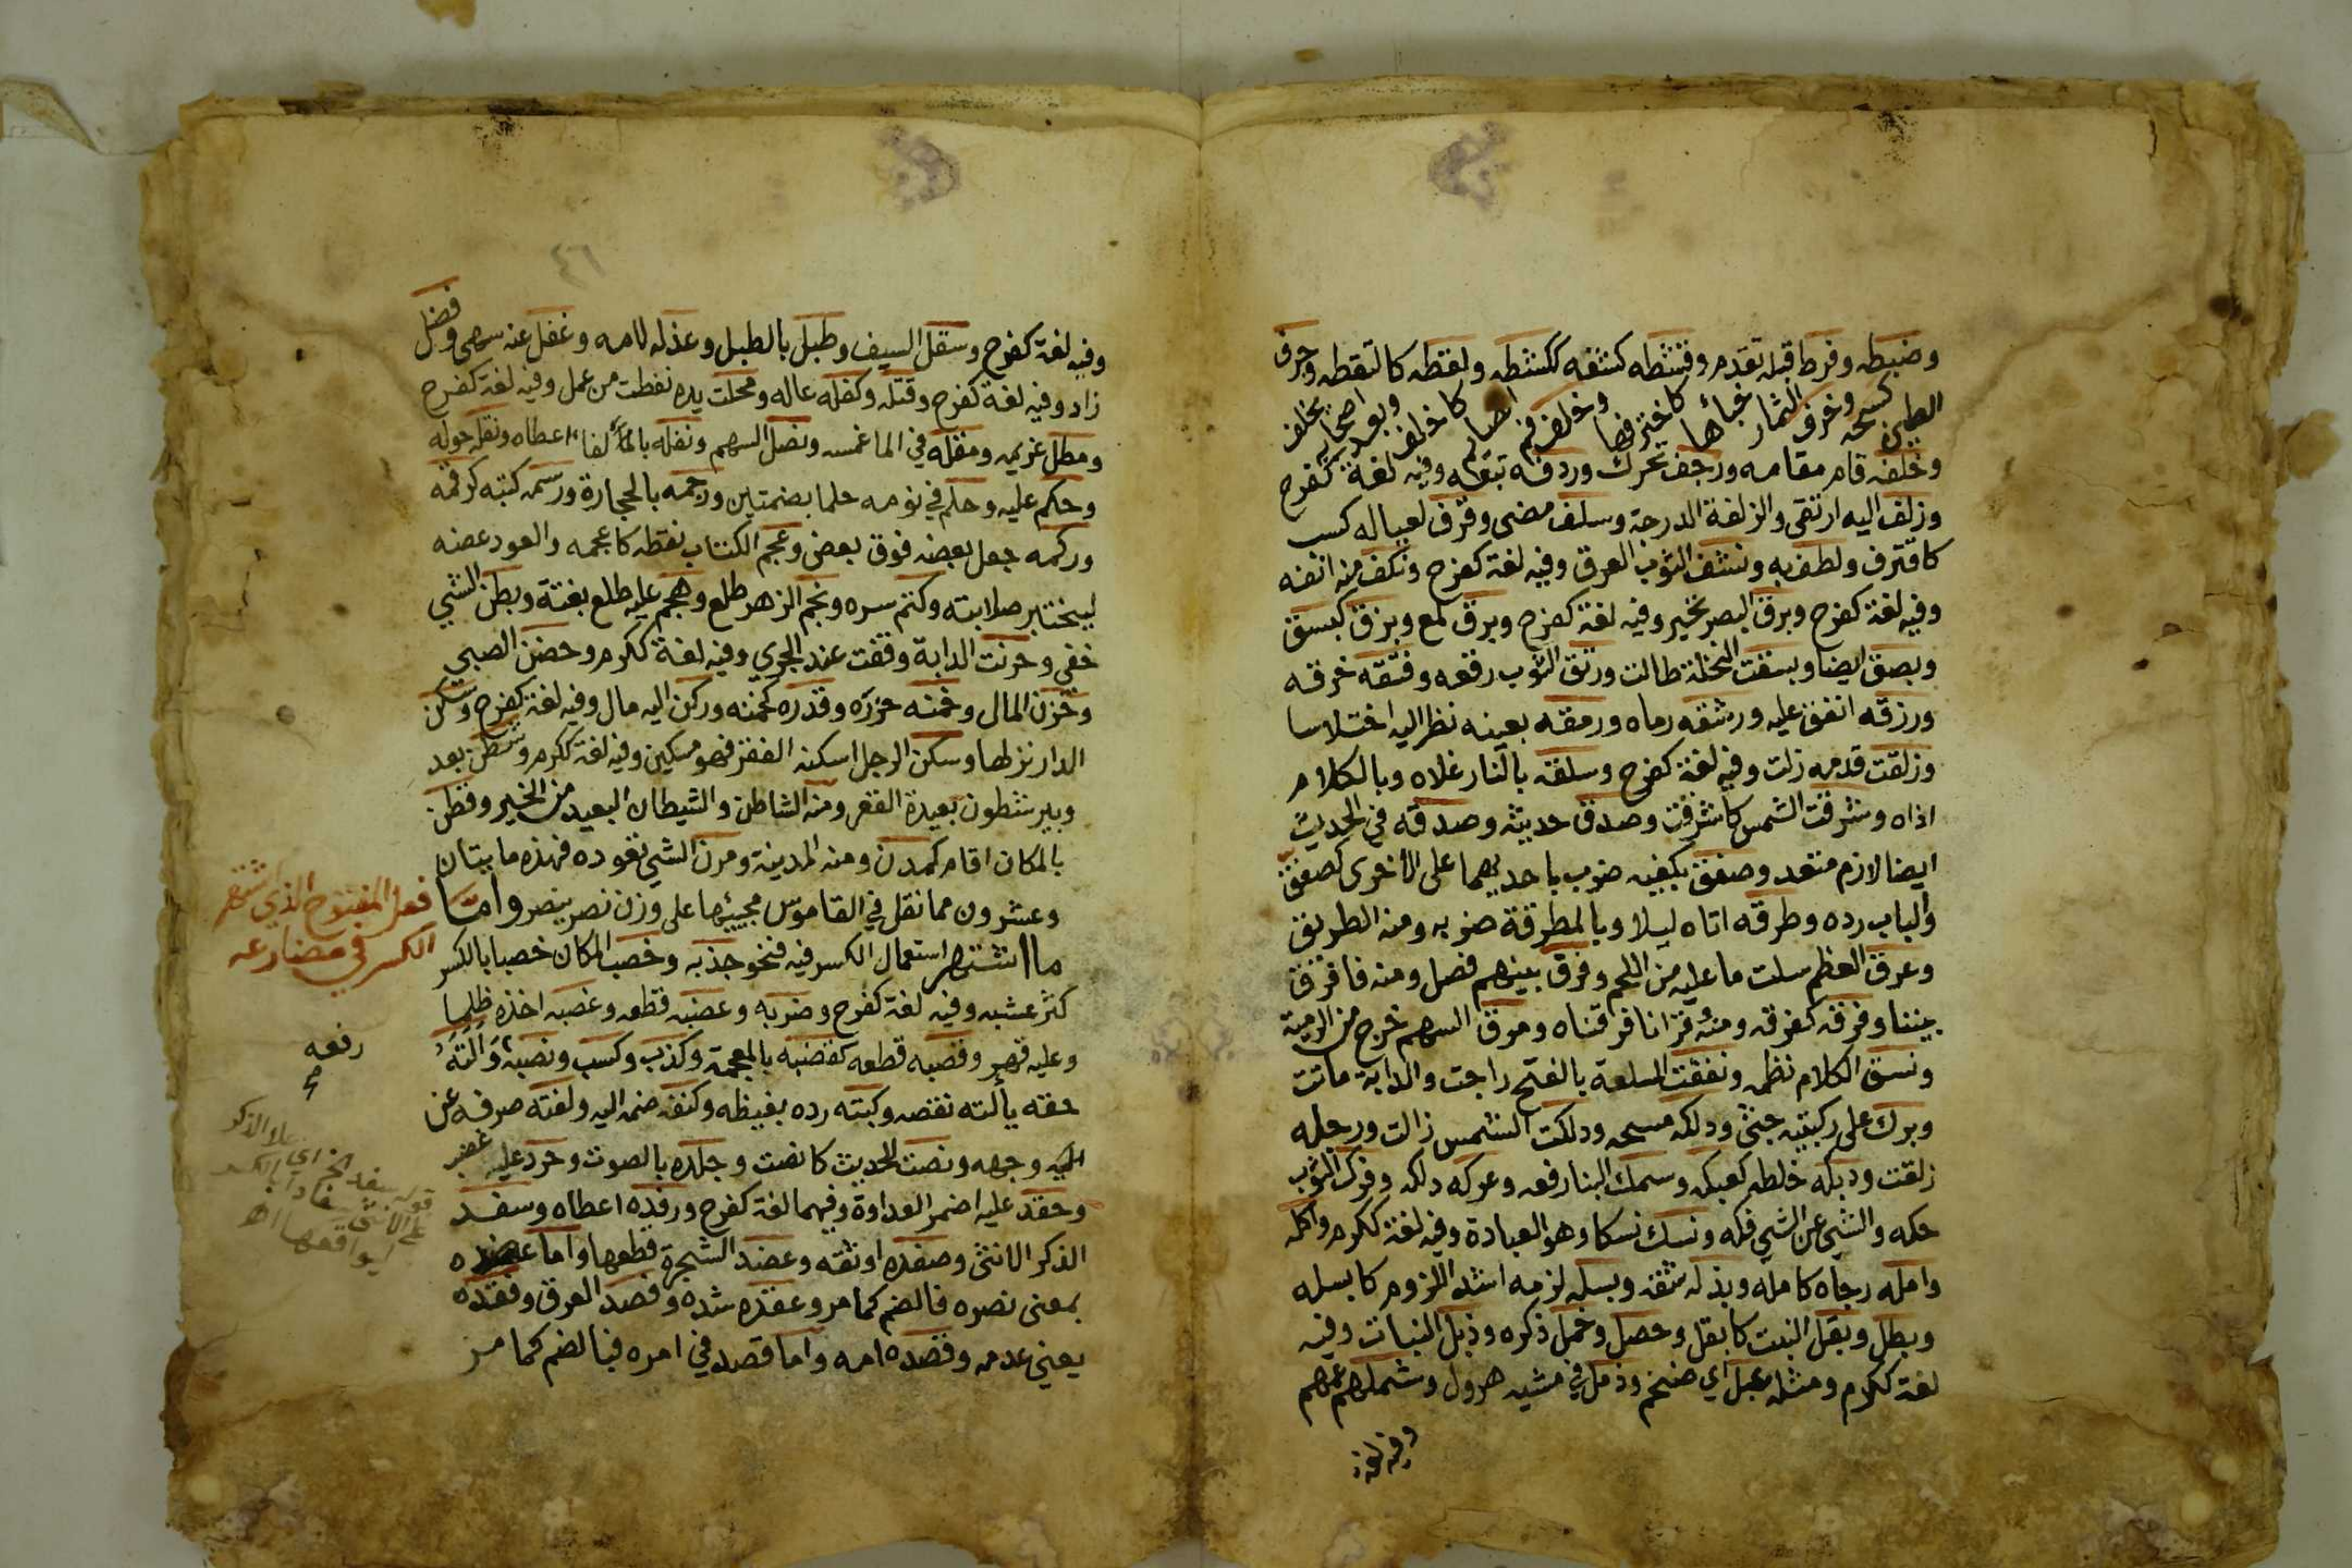 وضبطه وفرط قبله تقدم وقشطه كشفه ككشطه ولقطه كالتقطه وجرف
الطين كسحه وخرف الثمار جناءها كاخترفها وخلف فم الصائم كاخلف وبعد اصحابه تخلف
وخلفه قام مقامه ورجف تحرك وردفه تبعه وفيه لغة كفرح
وزلف اليه ارتقى والزلفة الدرجة وسلف مضى وقرف لعياله كسب
كاقترف ولطف به ونشف الثوب العرق وفيه لغة كفرح ونكف منه انفه
وفيه لغة كفرح وبرق البصر تحير وفيه لغة كفرح وبرق لمع وبزق كبسق
وبصق ايضا وبسقت النخلة طالت ورتق الثوب رقعه وفتقه خرقه
ورزقه انفق عليه ورشقه رماه ورمقه بعينه نظر اليه اختلاسا
وزلقت قدمه زلت وفيه لغة كفرح وسلقه بالنار غلاه وبالكلام
اذاه وشرقت الشمس كاشرقت وصدق حديثه وصدقه في الحديث
ايضا لازم متعد وصفق بكفيه ضرب باحديهما على الاخرى كصفق
والباب رده وطرقه اتاه ليلا وبالمطرقة ضربه ومنه الطريق
وعرق العظم سلت ما عليه من اللحم وفرق بينهم فصل ومنه فافرق
بيننا وفرقه كفرقه ومنه وقرانا فرقناه ومرق السهم خرج من الرمية
ونسق الكلام نظمه ونفقت السلعة بالفتح راجت والدابة ماتت
وبرك على ركبتيه جثى ودلكه مسحه ودلكت الشمس زالت ورجله
زلقت ودبكه خلطه كعبكه وسمك البنا رفعه وعركه دلكه وفرك الثوب
حكه والشي عن الشي فكه ونسك نسكا وهو العبادة وفيه لغة ككرم واكله
وامله رجاه كامله وبذله شقه وبسله لزمه اشد اللزوم كابسله
وبطل وبقل النبت كابقل وحصل وخمل ذكره وذبل النبات وفيه
لغة ككرم ومثله عبل اي ضخم وذمل في مشيه هرول وشملهم عمهم
وفيه لغة
٤٦
وفيه لغة كفرح وسقل السيف وطبل بالطبل وعذله لامه وغفل عنه سهى وفضل
زاد وفيه لغة كفرح وقتله وكفله عاله ومجلت يده نفطت من عمل وفيه لغة كفرح
ومطل غريمه ومقله في الما غمسه ونصل السهم ونفله اعطاه ونقله حوله
وحكم عليه وحلم في نومه حلما بضمتين ورجمه بالحجارة ورسمه كتبه كرقمه
وركمه جعل بعضه فوق بعض وعجم الكتاب نقطه كاعجمه والعود عضه
ليختبر صلابته وكتم سره ونجم الزهر طلع وهجم عليه طلع بغتة وبطن الشي
خفي وحرنت الدابة وقفت عند الجري وفيه لغة ككرم وحضن الصبي
وخزن المال وخمنه حزره وقدره كخمنه وركن اليه مال وفيه لغة كفرح وسكن
الدار نزلها وسكن الرجل اسكنه الفقر فهو مسكين وفيه لغة ككرم وشطن بعد
وبير شطون بعيدة القعر ومنه الشاطن والشيطان البعيد من الخير وقطن
بالمكان اقام كمدن ومنه المدينة ومرن الشي تعوده فهذه مايتان
وعشرون مما نقل في القاموس مجيئها على وزن نصر ينصر واما
ما اشتهر استعمال الكسر فيه فنحو جذبه وخصب المكان خصبا بالكسر
كثر عشبه وفيه لغة كفرح وضربه وعضبه قطعه وغصبه اخذه ظلما
وعليه قهر وقصبه قطعه كقضبه بالمعجمة وكذب وكسب ونصبه والته
حقه يألته نقصه وكبته رده بغيظه وكفته ضمه اليه ولفته صرفه عن
وجهه ونصت للحديث كانصت وجلده بالصوت وحرد عليه غضب
وحقد عليه اضمر العداوة وفيهما لغة كفرح ورفده اعطاه وسفد
الذكر الانثى وصفده اوثقه وعضد الشجرة قطعها واما عضده
بمعنى نصره فالضم كما مر وعقده شده وفصد العرق وفقده
يعني عدمه وقصده امه واما قصد في امره فبالضم كما مر
فعل المفتوح الذي اشتهر
الكسر في مضارعه
رفعه